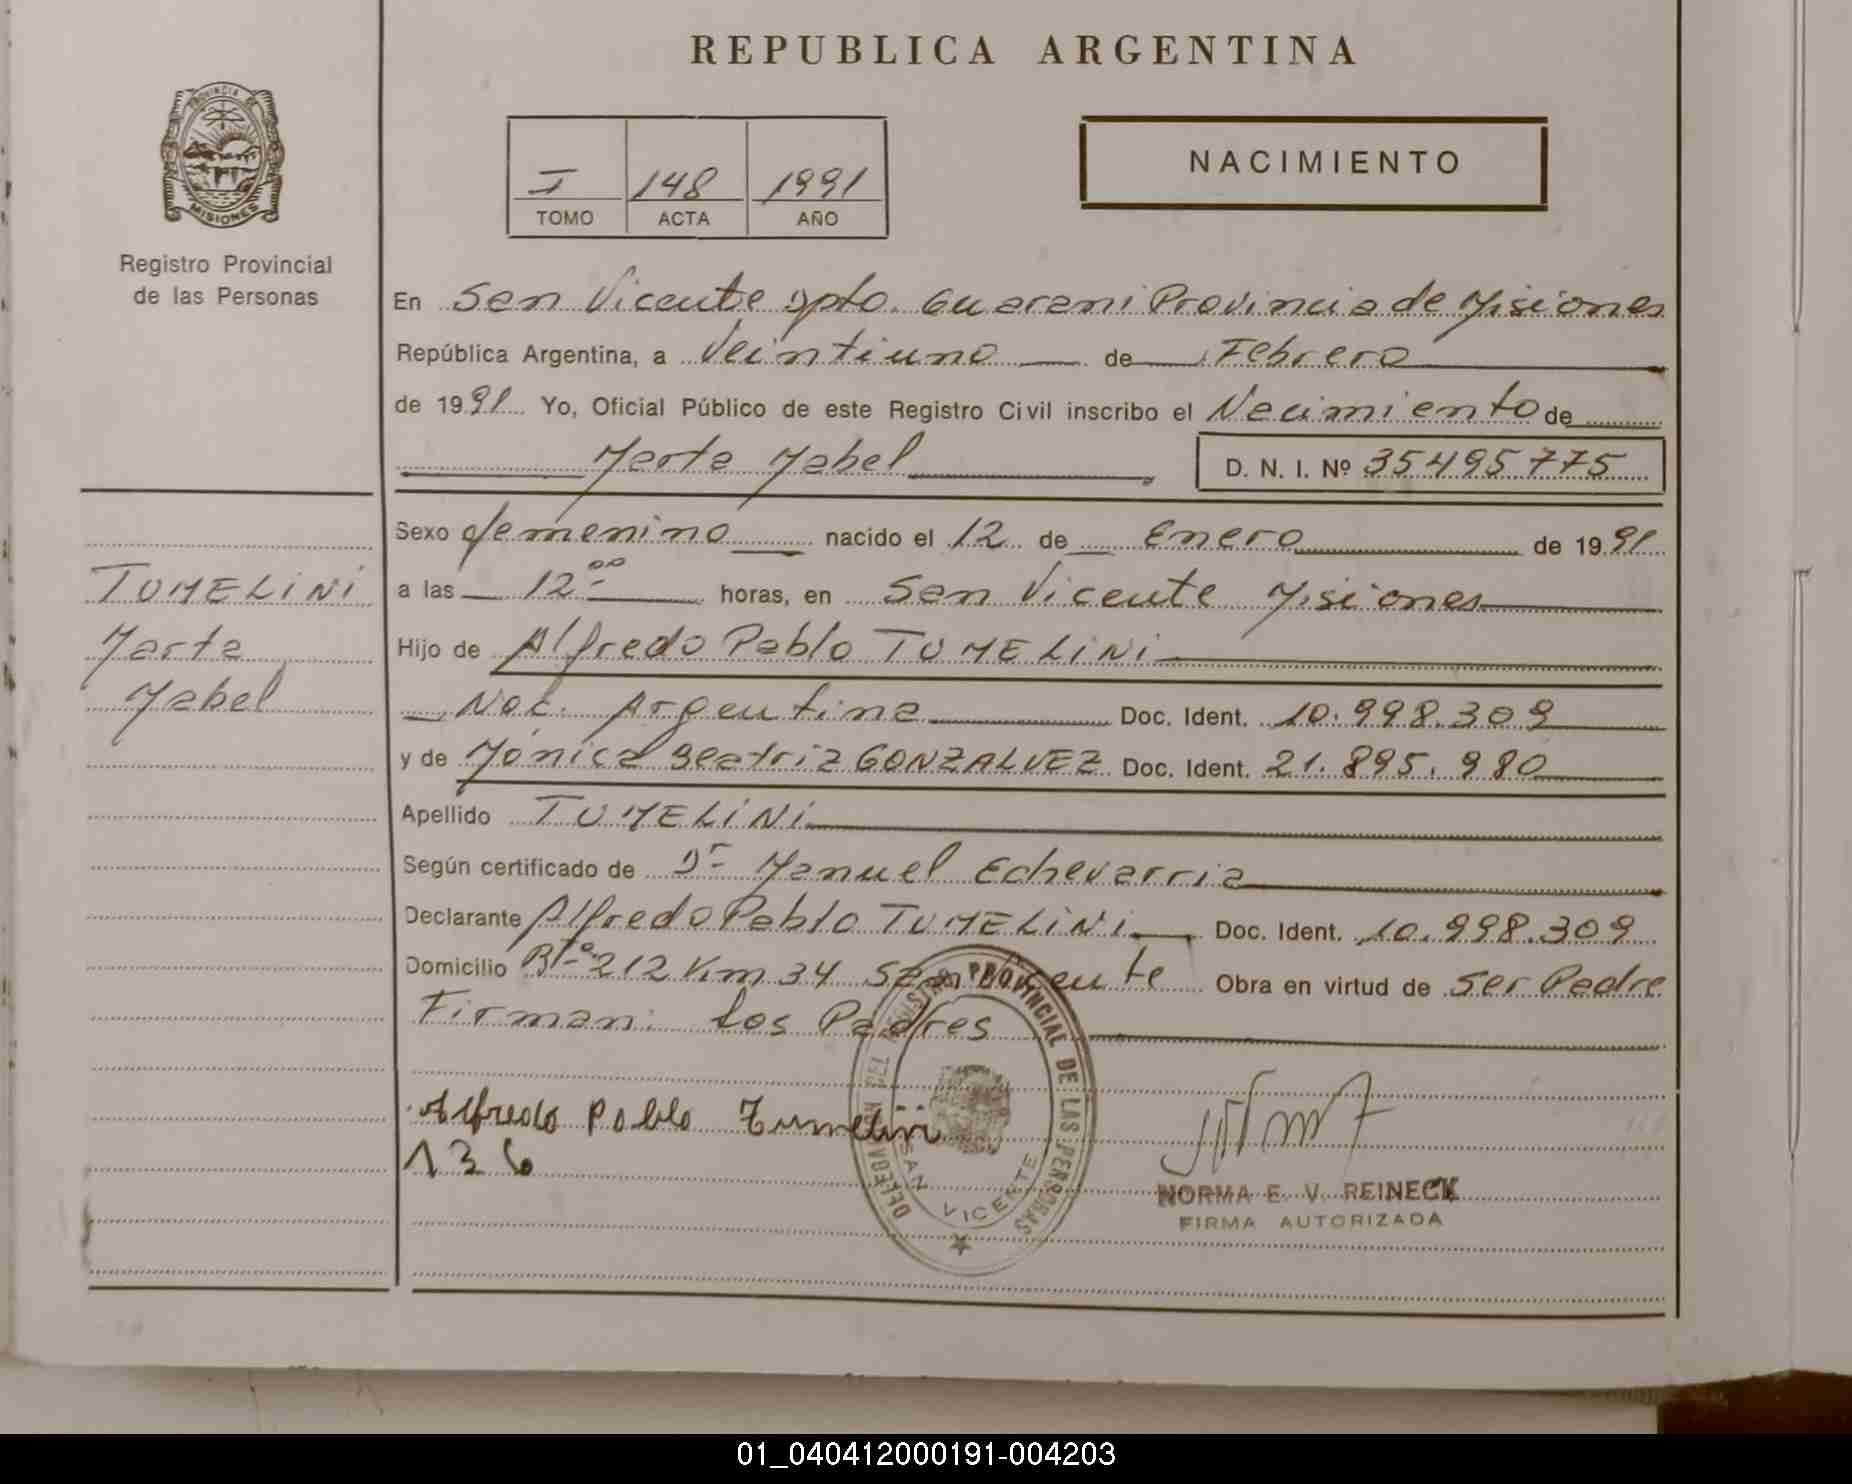 REPUBLICA ARGENTINA
PROVINCIA DE
MISIONES
Registro Provincial
de las Personas
I 148 1991
TOMO ACTA AÑO
NACIMIENTO
En San Vicente Dpto. Guarani Provincia de Misiones
República Argentina, a Veintiuno de Febrero
de 1991 Yo, Oficial Público de este Registro Civil inscribo el Nacimiento de
Marta Mabel D. N. I. Nº 35495775
Sexo femenino nacido el 12 de Enero de 1991
TUMELINI
Marta
Mabel
a las 12 00 horas, en San Vicente Misiones
Hijo de Alfredo Pablo TUMELINI
Nac. Argentina Doc. Ident. 10.998.309
y de Mónica Beatriz GONZALVEZ Doc. Ident. 21.895.980
Apellido TUMELINI
Según certificado de Dr Manuel Echevarria
Declarante Alfredo Pablo TUMELINI Doc. Ident. 10.998.309
Domicilio Rta 212 Km 34 San Vicente Obra en virtud de ser Padre
Firman: los Padres
Alfredo Pablo Tumelini
136
DELEGACION DEL REGISTRO PROVINCIAL DE LAS PERSONAS
SAN VICENTE
NORMA E. V. REINECK
FIRMA AUTORIZADA
01_040412000191-004203